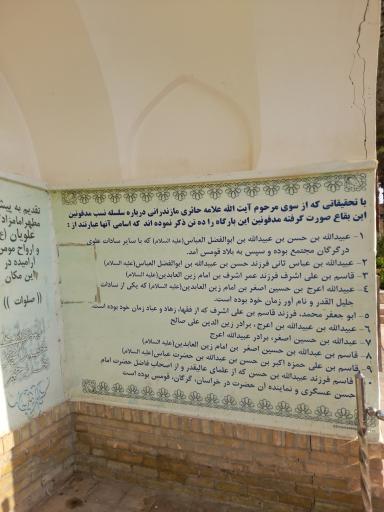 با تحقیقاتی که از سوی مرحوم آیت الله علامه حائری مازندرانی درباره سلسله نسب مدفونین
این بقاع صورت گرفته مدفونین این بارگاه را ده تن ذکر نموده اند که اسامی آنها عبارتند از :
۱- عبیدالله بن حسن بن عبیدالله بن ابوالفضل العباس(علیه السلام) که با سایر سادات علوی
درگرگان مجتمع بوده و سپس به بلاد قومس آمد.
۲- عبیدالله بن عباس ثانی فرزند حسن بن عبیدالله بن ابوالفضل العباس(علیه السلام)
۳- قاسم بن علی اشرف فرزند عمر اشرف بن امام زین العابدین(علیه السلام)
۴- عبیدالله اعرج بن حسین اصغر بن امام زین العابدین(علیه السلام) که یکی از سادات
جلیل القدر و نام اور زمان خود بوده است.
۵- ابو جعفر محمد، فرزند قاسم بن علی اشرف که از فقها، زهاد و عباد زمان خود بوده است.
۶- عبیدالله بن عبیدالله بن اعرج، برادر زین الدین علی صالح
۷- عبیدالله بن حسین اصغر، برادر عبیدالله اعرج
۸- قاسم بن عبیدالله بن حسین اصغر بن امام زین العابدین(علیه السلام)
۹- قاسم بن علی بن حمزه اکبر بن حسن بن عبیدالله بن حضرت عباس(علیه السلام)
۱۰- قاسم فرزند عبیدالله بن حسن که از علمای عالیقدر و از اصحاب فاضل حضرت امام
حسن عسکری و نماینده ان حضرت در خراسان، گرگان، قومس بوده است
تقدیم به پیش
مطهر امامزاد
علویان (ع
و ارواح مومن
آرمیده در
این مکان
(( صلوات ))